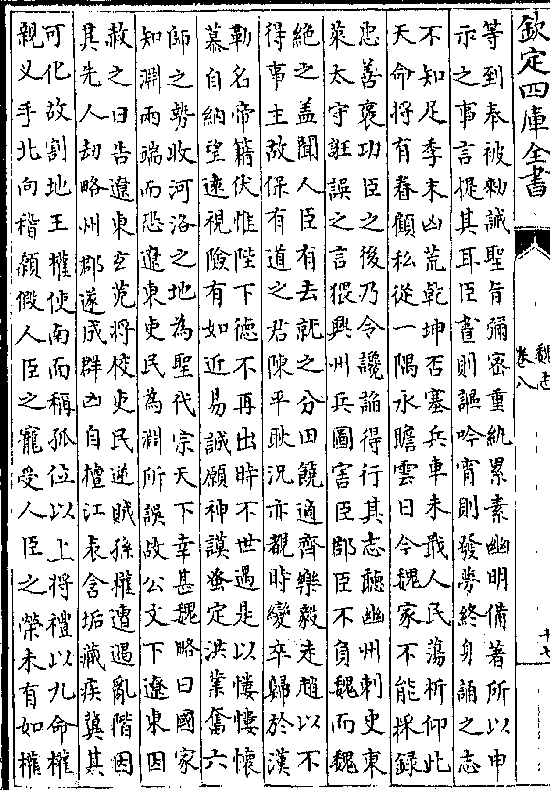 欽定四庫全書
魏志
卷八
十七
等到奉被勅誡聖旨彌密重紈累素幽明備著所以申
示之事言提其耳臣晝則謳吟宵則發夢終身誦之志
不知足季末凶荒乾坤否塞兵車未戢人民蕩析仰此
天命將有眷顧私從一隅永瞻雲日今魏家不能採錄
忠善褒功臣之後乃令讒諂得行其志聽幽州刺史東
萊太守誑誤之言猥興州兵圖害臣郡臣不負魏而魏
絕之盖聞人臣有去就之分田饒適齊樂毅走趙以不
得事主故保有道之君陳平耿況亦覩時變卒歸於漢
勒名帝籍伏惟陛下德不再出時不世遇是以慺慺懷
慕自納望遠視險有如近易誠願神謨蚤定洪業奮六
師之勢收河洛之地為聖代宗天下幸甚魏略曰國家
知淵兩端而恐遼東吏民為淵所誤故公文下遼東因
赦之曰告遼東玄菟將校吏民逆賊孫權遭遇亂階因
其先人劫略州郡遂成群凶自擅江表含垢藏疾冀其
可化故割地王權使南面稱孤位以上將禮以九命權
親叉手北向稽顙假人臣之寵受人臣之榮未有如權